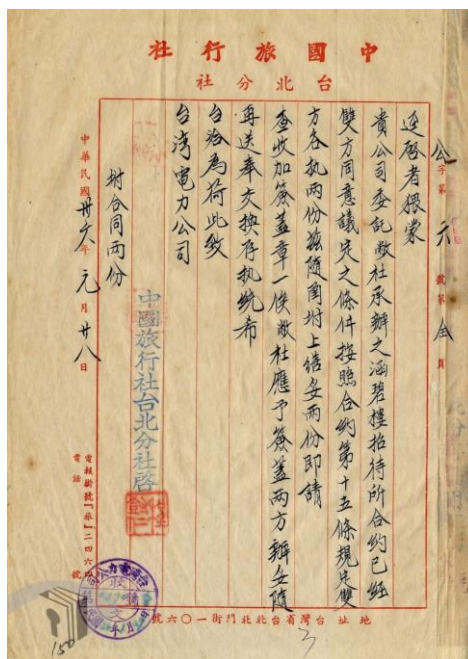 中國旅行社
台北分社
公字第元號第全頁
逕啓者猥蒙
貴公司委託敝社承辦之涵碧樓招待所合約已經
雙方同意議定之條件按照合約第十五條規定雙
方各執兩份茲隨圅坿上繕妥兩份即請
查收加簽蓋章一俟敝社應予簽蓋兩方辦妥隨
再送奉交換存執統希
台洽為荷此致
台灣電力公司
坿合同兩份
中國旅行社台北分社啓
中華民國卅六年元月廿八日
電報掛號「旅」二四六四
電話 號
地址台灣省台北北門街一〇六號
150
3